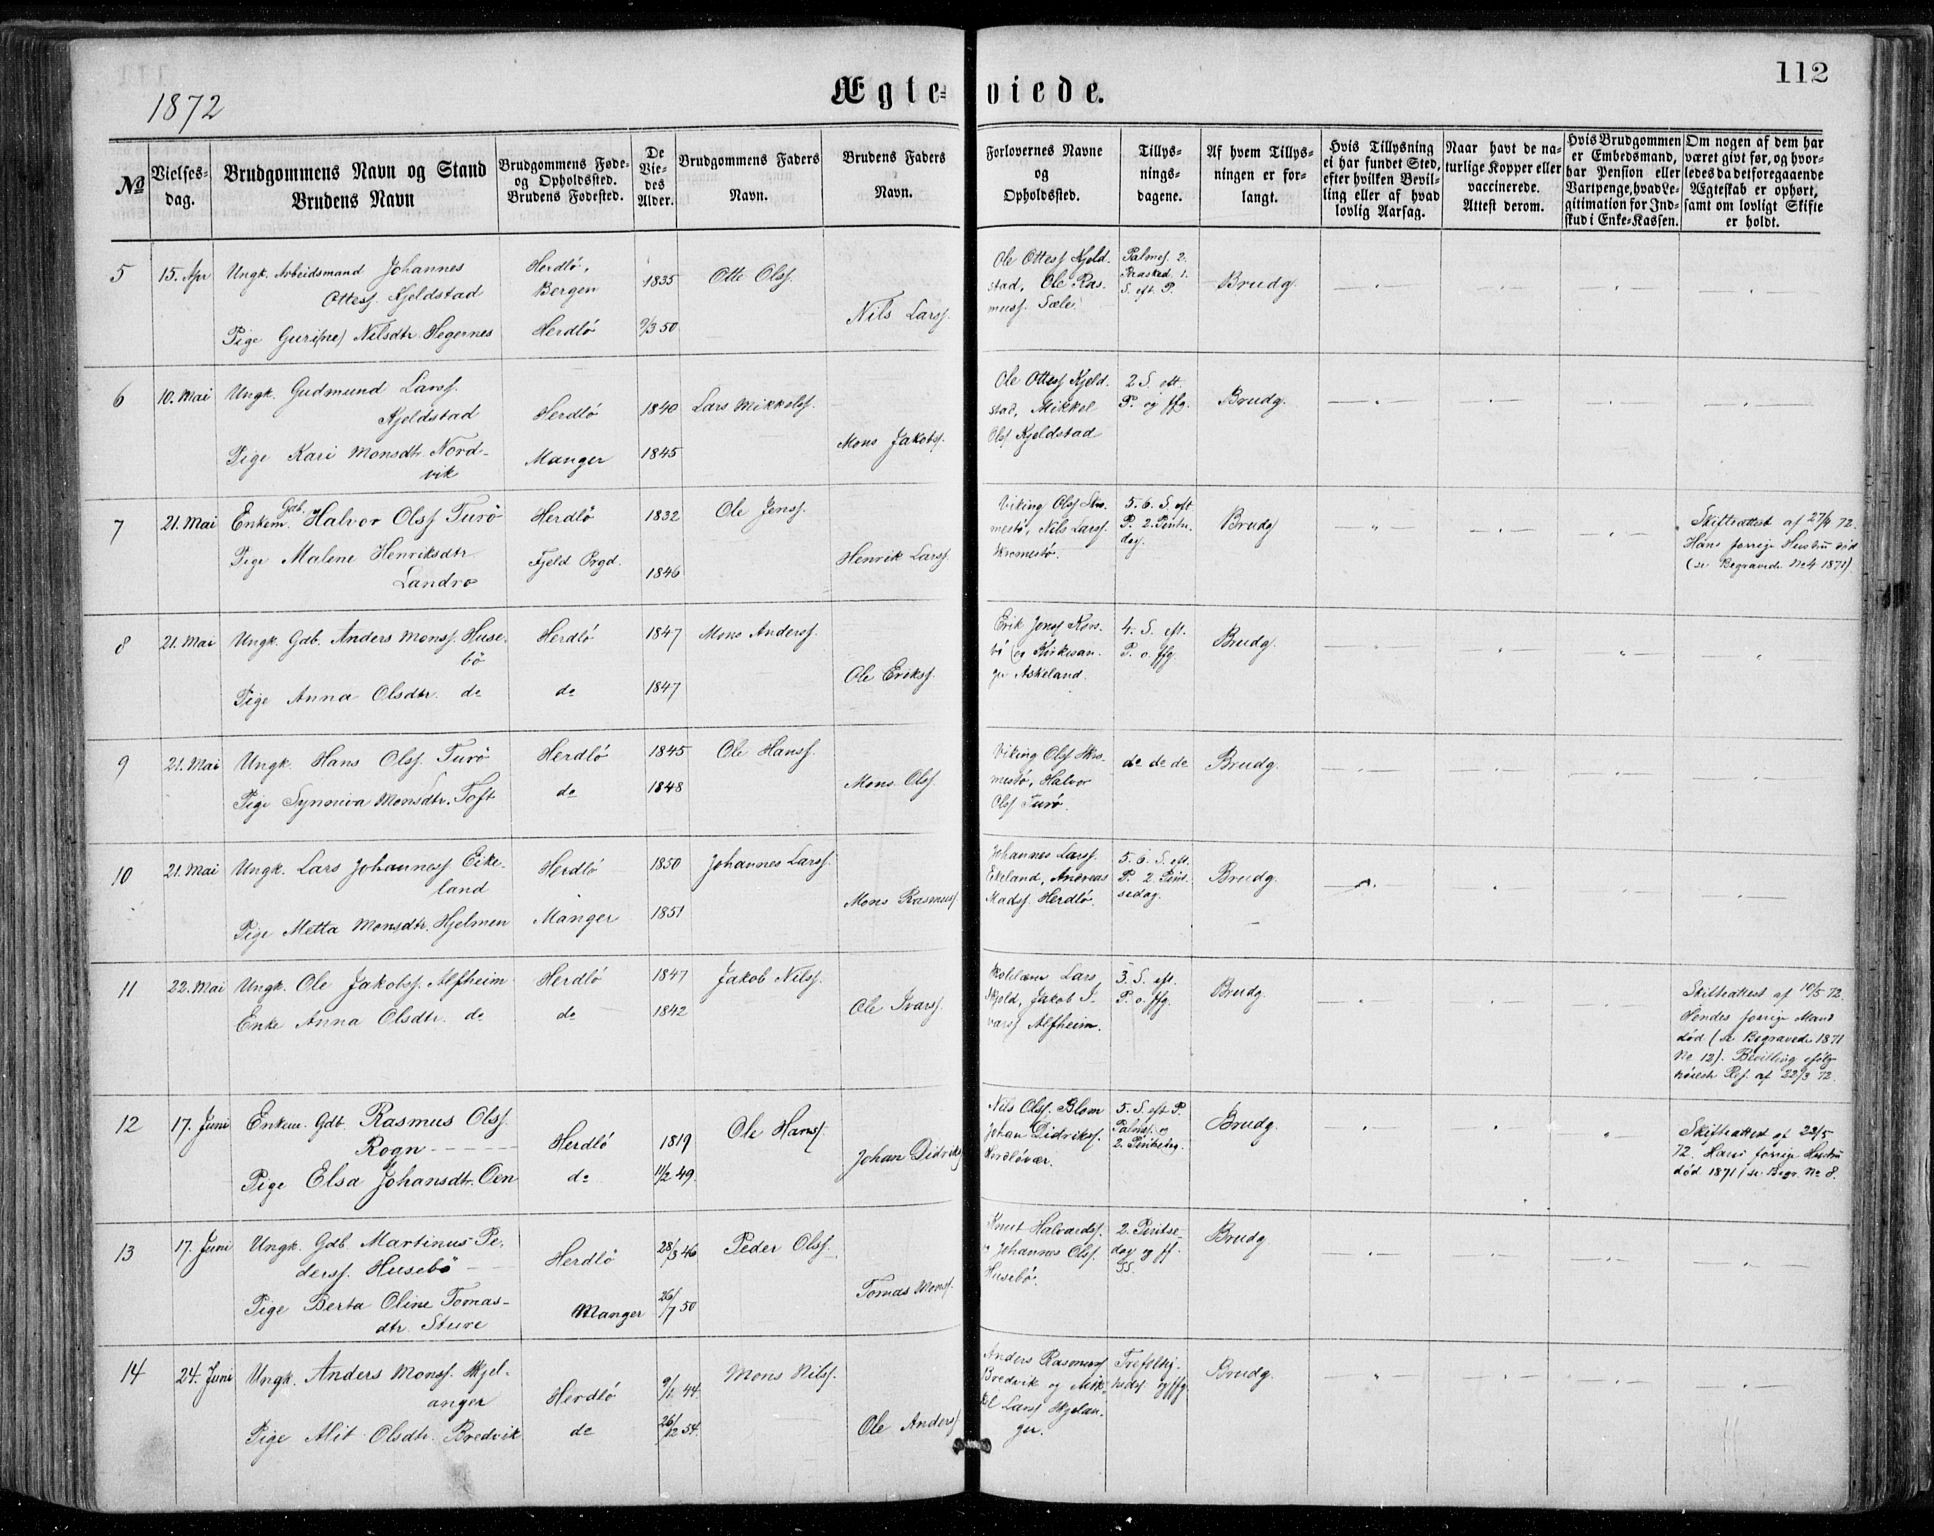 112
1872
Ægte-viede.
No
Vielses-
dag.
Brudgommens Navn og Stand
Brudens Navn
Brudgommens Føde-
og Opholdssted.
Brudens Fødested.
De
Vie-
des
Alder.
Brudgommens Faders
Navn.
Brudens Faders
Navn.
Forlovernes Navne
og
Opholdssted.
Tillys-
nings-
dagene.
Af hvem Tillys-
ningen er for-
langt.
Hvis Tillysning
ei har fundet Sted,
efter hvilken Bevil-
ling eller af hvad
lovlig Aarsag.
Naar havt de na-
turlige Kopper eller
vaccinerede.
Attest derom.
Hvis Brudgommen
er Embedsmand,
har Pension eller
Vartpenge, hvad Le-
gitimation for Ind-
skud i Enke-Kassen.
Om nogen af dem har
været gift før, og hvor-
ledes da det foregaaende
Ægteskab er ophørt,
samt om lovligt Skifte
er holdt.
5 15. Apr Ungk. Arbeidsmand Johannes
Ottess. Kjeldstad
Pige Guri(ne) Nilsdtr Hegernes
Herdlø.
Bergen
Herdlö
1835
9/3 50
Otte Olsf.
Nils Larsf.
Ole Ottesf Kjeld-
stad, Ole Ras-
musf. Sæle.
Palmes. 2.
Paasked. 1.
S. eft. P.
Brudg.
6 10. Mai Ungk. Gudmund Larsf.
Kjeldstad
Pige Kari Monsdtr Nord-
vik
Herdlö
Manger
1840
1845
Lars Mikkelsf.
Mons Jakobsf.
Ole Ottesf Kjeld-
stad, Mikkel
Olsf Kjeldstad
2 S. eft.
P. og ffg.
Brudg.
7 21. Mai Enkem. Gdb. Halvor Olsf Turö
Pige Malene Henriksdtr
Landro
Herdlö
Fjeld Prgd.
1832
1846
Ole Jensf.
Henrik Larsf.
Viking Olsf Skro-
mestø, Nils Larsf.
Skromestø.
5. 6. S. eft
P. 2. Pintse-
dag.
Brudg
Skifteattest af 27/4 72.
Hans forrige Hustru død
(se Begravede No 4 1871).
8 21. Mai Ungk. Gdb. Anders Monsf. Huse-
bö
Pige Anna Olsdtr. do
Herdlö
do
1847
1847
Mons Andersf.
Ole Eriksf.
Erik Jensf
og Kirkesan-
ger Askeland.
4. S. eft.
P. o. ffg.
Brudg.
9 21. Mai Ungk. Hans Olsf. Turö
Pige Synneva Monsdtr. Toft
Herdlö
do
1845
1848
Ole Hansf.
Mons Olsf.
Viking Olsf Skro-
mestø, Halvor
Olsf. Turö.
do do do
Brudg.
10 21. Mai Ungk. Lars Johannesf Eike-
land
Pige Metta Monsdtr. Hjelmen
Herdlö
Manger
1850
1851
Johannes Larsf.
Mons Rasmusf.
Johannes Larsf.
Eikeland, Andreas
Madsf Herdlö.
5. 6. S. eft.
P. 2. Pint-
sedag.
Brudg.
11 22. Mai Ungk. Ole Jakobsf. Alfheim
Enke Anna Olsdtr. do
Herdlö
do
1847
1842
Jakob Nilsf.
Ole Ivarsf.
Skolelærer Lars
Skjold, Jakob I-
varsf Alfheim.
3. S. eft.
P. o. ffg.
Brudg.
Skifteattest af 10/5 72.
Hendes forrige Mand
død (se Begravede 1871
No 12). Bevilling ifølge
høieste Res. af 22/3 72.
12 17. Juni Enkem. Gdb. Rasmus Olsf.
Rogn
Pige Elsa Johansdtr. Oen
Herdlö
do
1819
11/2 49.
Ole Hansf.
Johan Didriksf
Nils Olsf. Blom
Johan Didriksf.
Herdløvær.
5. S. eft P.
Palmes. og
2. Pintsedag.
Brudg.
Skifteattest af 23/5
72. Hans forrige Hustru
død 1871 (se Begr. No 8.
13 17. Juni Ungk. Gdb. Martinus Pe-
dersf. Husebö
Pige Berta Oline Tomas-
dtr. Sture
Herdlö
Manger
28/3 46
26/7 50
Peder Olsf.
Tomas Monsf.
Knut Halvardsf.
o Johannes Olsf.
Husebö.
2. Pintse-
dag og ff.
SS.
Brudg
14 24. Juni Ungk. Anders Monsf. Skjel-
anger
Pige Alit Olsdtr. Bredvik
Herdlö
do
9/1 44.
26/12 54.
Mons Nilsf.
Ole Andersf
Anders Rasmusf
Bredvik og Mik-
kel Larsf Skjelan-
ger.
Trefoldig-
hedsf. og ffg.
Brudg.